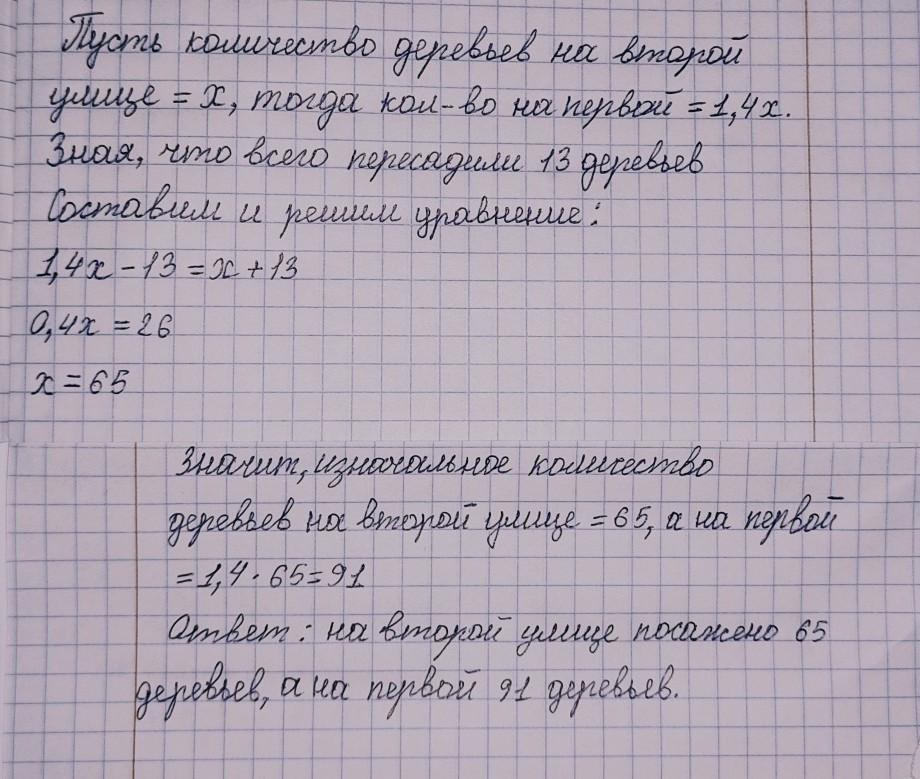 Пусть количество деревьев на второй
улице = x, тогда кол-во на первой = 1,4x.
Зная, что всего пересадили 13 деревьев
Составим и решим уравнение:
1,4x - 13 = x + 13
0,4x = 26
x = 65
Значит, изначальное количество
деревьев на второй улице = 65, а на первой
= 1,4 · 65 = 91
Ответ: на второй улице посажено 65
деревьев, а на первой 91 деревьев.